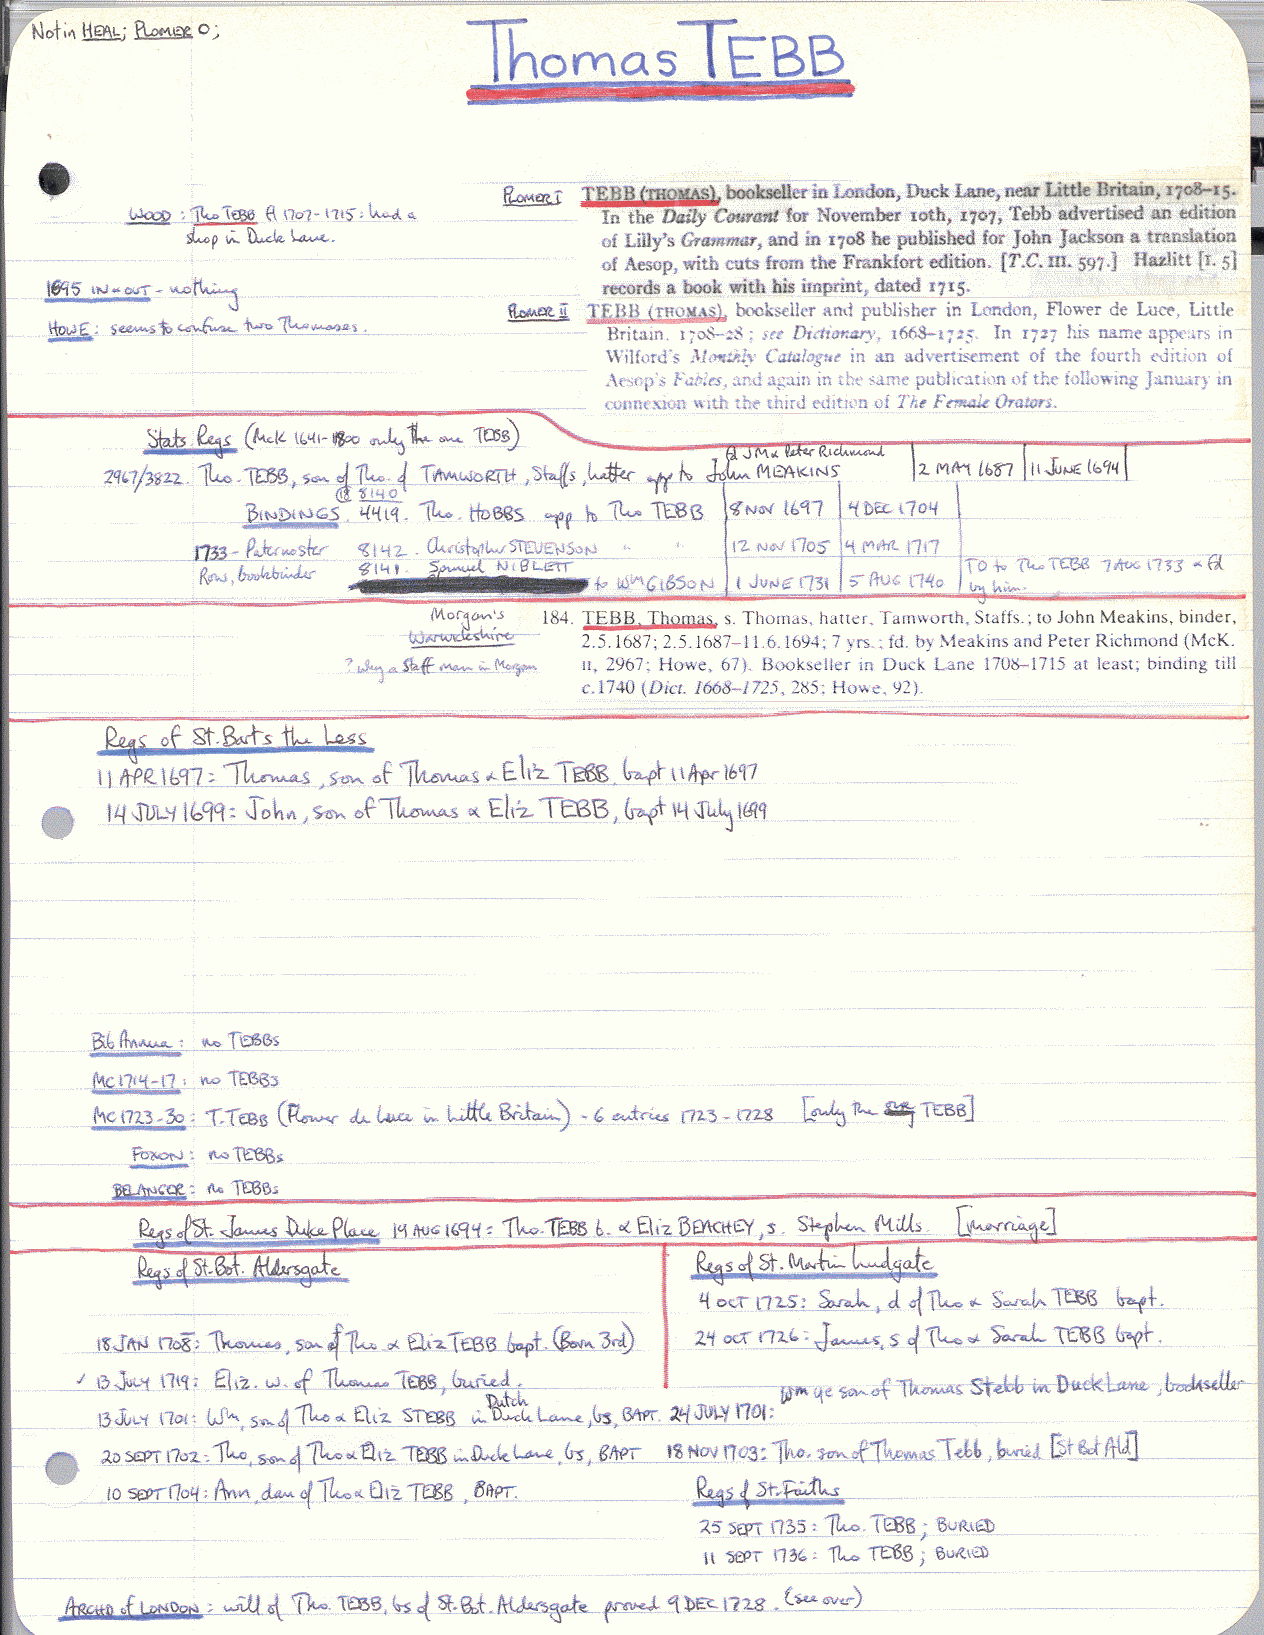 Not in HEAL; PLOMER O;
Thomas TEBB
WOOD: Tho TEBB fl 1707-1715: had a
shop in Duck Lane.
1695 IN & OUT - nothing
HOWE: seems to confuse two Thomases.
PLOMER I TEBB (THOMAS), bookseller in London, Duck Lane, near Little Britain, 1708–15.
In the Daily Courant for November 10th, 1707, Tebb advertised an edition
of Lilly's Grammar, and in 1708 he published for John Jackson a translation
of Aesop, with cuts from the Frankfort edition. [T.C. III. 597.] Hazlitt [I. 5]
records a book with his imprint, dated 1715.
PLOMER II TEBB (THOMAS), bookseller and publisher in London, Flower de Luce, Little
Britain, 1708–28; see Dictionary, 1668–1725. In 1727 his name appears in
Wilford's Monthly Catalogue in an advertisement of the fourth edition of
Aesop's Fables, and again in the same publication of the following January in
connexion with the third edition of The Female Orators.
Stats. Regs (McK 1641-1800 only the one TEBB)
fd JM & Peter Richmond
2967/3822. Tho. TEBB, son of Tho. of TAMWORTH, Staffs, hatter app to John MEAKINS 2 MAY 1687 11 JUNE 1694
8140
BINDINGS 4419. Tho. HOBBS app to Tho TEBB 8 NOV 1697 4 DEC 1704
1733 - Paternoster 8142. Christopher STEVENSON " " 12 NOV 1705 4 MAR 1717
Row, bookbinder 8141. Samuel NIBLETT to Wm GIBSON 1 JUNE 1731 5 AUG 1740 TO to Tho TEBB 7 AUG 1733 & fd
by him.
Morgan's
Warwickshire
? why a Staff man in Morgan
184. TEBB, Thomas, s. Thomas, hatter, Tamworth, Staffs.; to John Meakins, binder,
2.5.1687; 2.5.1687–11.6.1694; 7 yrs.; fd. by Meakins and Peter Richmond (McK.
II, 2967; Howe, 67). Bookseller in Duck Lane 1708–1715 at least; binding till
c.1740 (Dict. 1668–1725, 285; Howe, 92).
Regs of St. Barts the Less
11 APR 1697: Thomas, son of Thomas & Eliz TEBB, bapt 11 Apr 1697
14 JULY 1699: John, son of Thomas & Eliz TEBB, bapt 14 July 1699
Bib Annua: no TEBBs
MC 1714-17: no TEBBs
MC 1723-30: T. TEBB (Flower de Luce in Little Britain) - 6 entries 1723-1728 [only the TEBB]
FOXON: no TEBBs
BELANGER: no TEBBs
Regs of St. James Duke Place 19 AUG 1694: Tho. TEBB b. & Eliz BEACHEY, s. Stephen Mills. [marriage]
Regs of St. Bot. Aldersgate
18 JAN 1708: Thomas, son of Tho & Eliz TEBB bapt. (Born 3rd)
✓ 13 July 1719: Eliz. w. of Thomas TEBB, buried.
13 JULY 1701: Wm, son of Tho & Eliz STEBB in Dutch Duck Lane, bs, BAPT. 24 JULY 1701: Wm ye son of Thomas Stebb in Duck Lane, bookseller
20 SEPT 1702: Tho, son of Tho & Eliz TEBB in Duck Lane, bs, BAPT 18 NOV 1703: Tho. son of Thomas Tebb, buried [St Bot Ald]
10 SEPT 1704: Ann, dau of Tho & Eliz TEBB, BAPT.
Regs of St. Martin Ludgate
4 OCT 1725: Sarah, d of Tho & Sarah TEBB bapt.
24 OCT 1726: James, s of Tho & Sarah TEBB bapt.
Regs of St. Faiths
25 SEPT 1735: Tho. TEBB; BURIED
11 SEPT 1736: Tho TEBB; BURIED
ARCHD of LONDON: will of Tho. TEBB, bs of St. Bot. Aldersgate proved 9 DEC 1728. (see over)